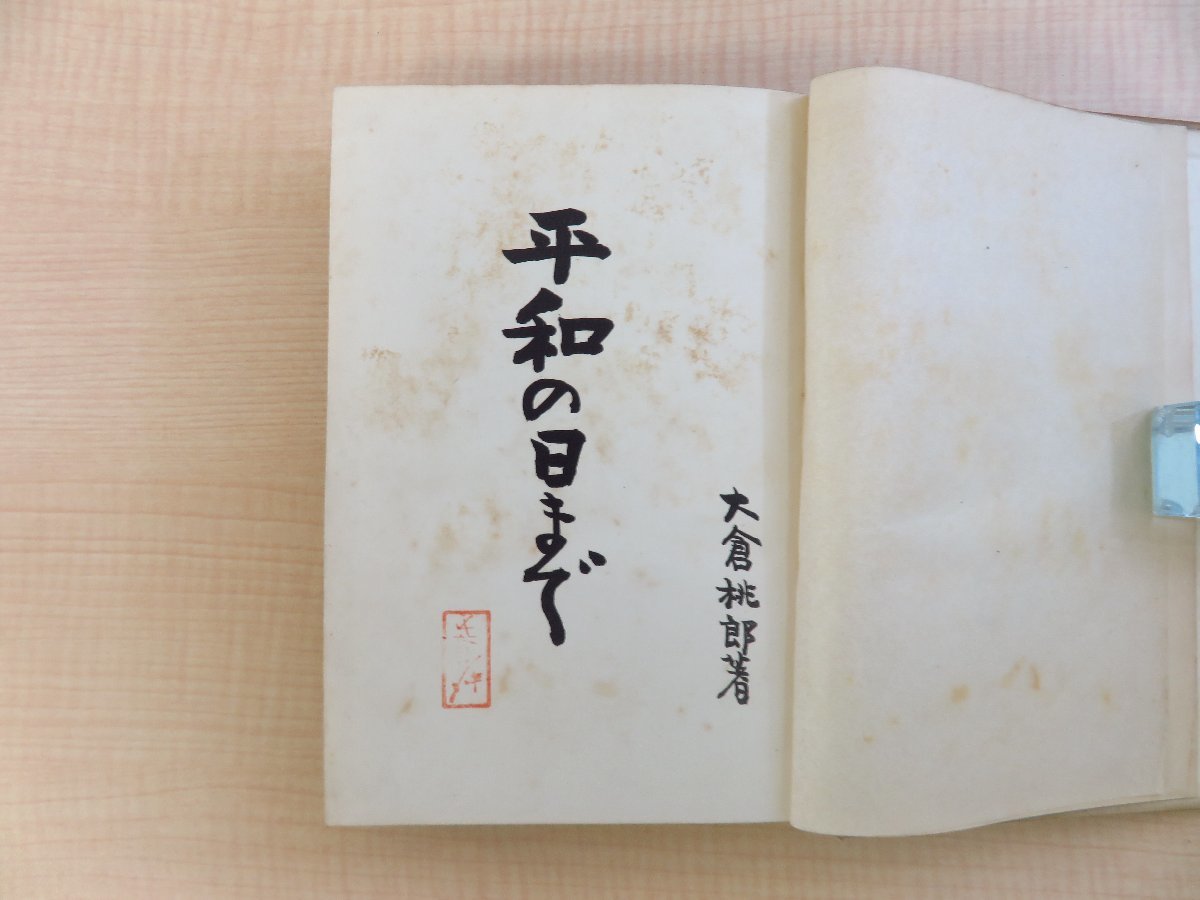 大倉桃郎著
平和の日まで